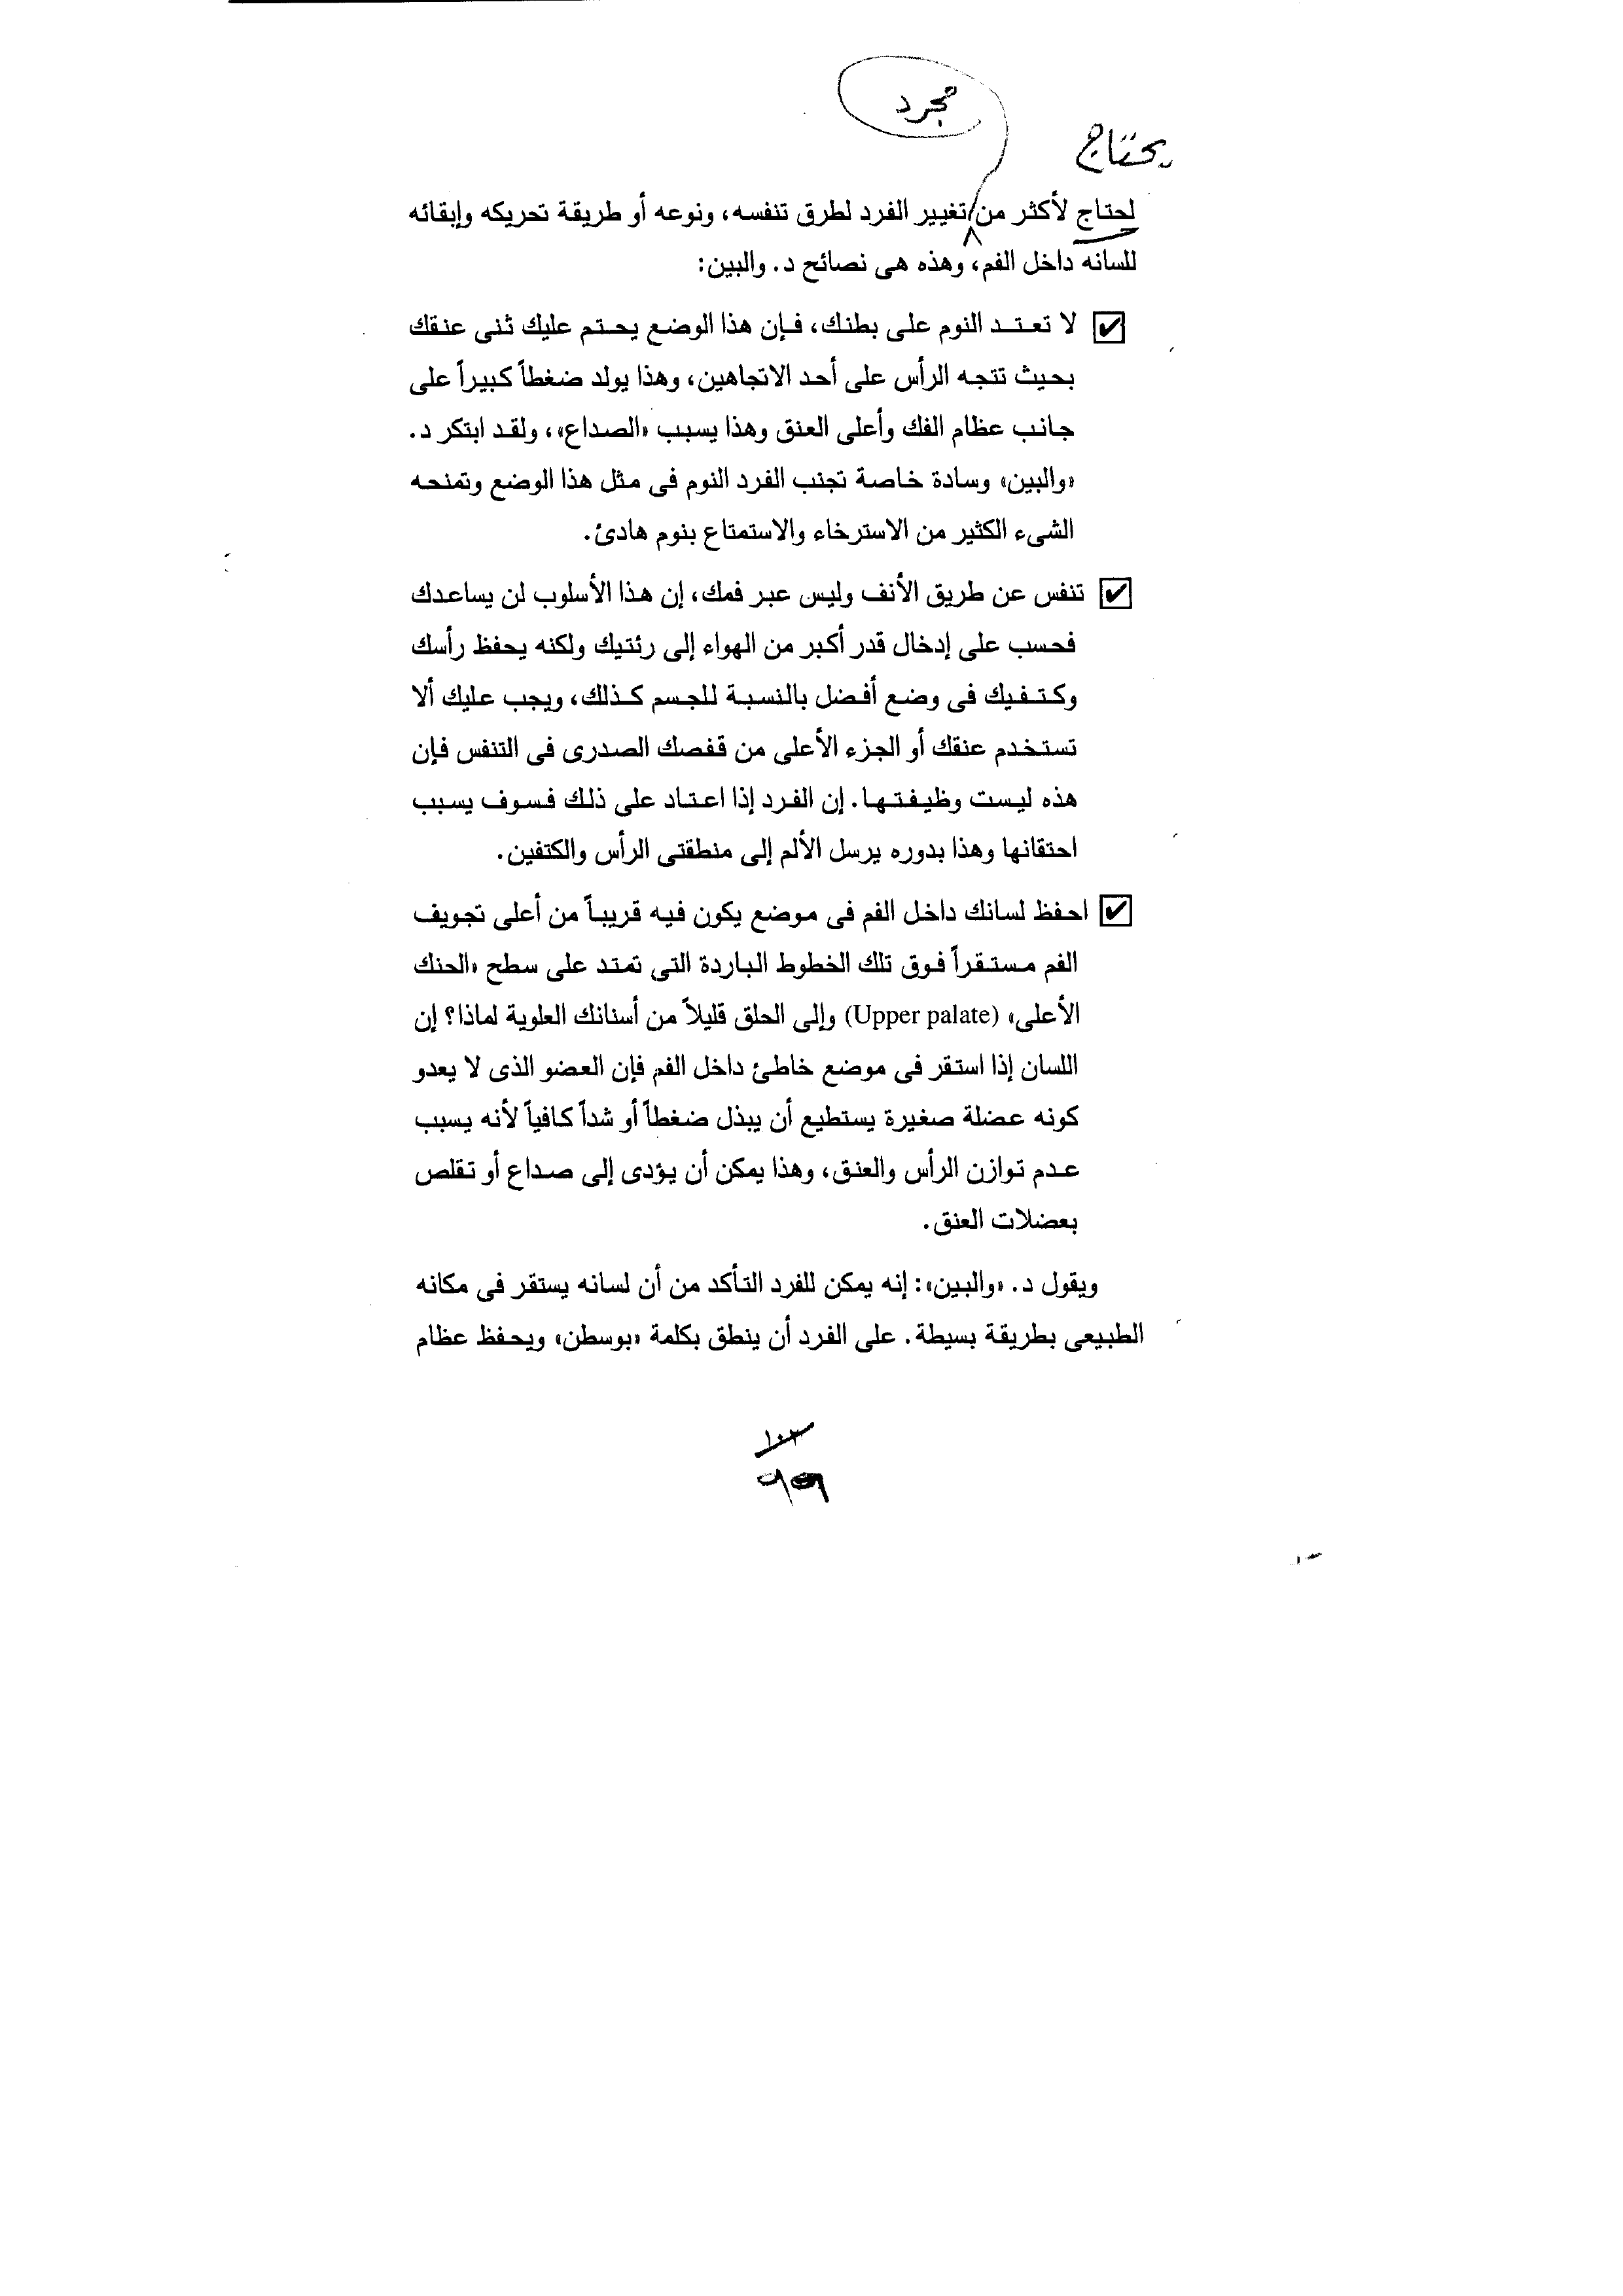 مجرد
يحتاج
لحتاج لأكثر من تغيير الفرد لطرق تنفسه، ونوعه أو طريقة تحريكه وإبقائه
للسانه داخل الفم، وهذه هى نصائح د. والبين:
☑ لا تعتد النوم على بطنك، فإن هذا الوضع يحتم عليك ثنى عنقك
بحيث تتجه الرأس على أحد الاتجاهين، وهذا يولد ضغطاً كبيراً على
جانب عظام الفك وأعلى العنق وهذا يسبب «الصداع»، ولقد ابتكر د.
«والبين» وسادة خاصة تجنب الفرد النوم فى مثل هذا الوضع وتمنحه
الشىء الكثير من الاسترخاء والاستمتاع بنوم هادئ.
☑ تنفس عن طريق الأنف وليس عبر فمك، إن هذا الأسلوب لن يساعدك
فحسب على إدخال قدر أكبر من الهواء إلى رئتيك ولكنه يحفظ رأسك
وكتفيك فى وضع أفضل بالنسبة للجسم كذلك، ويجب عليك ألا
تستخدم عنقك أو الجزء الأعلى من قفصك الصدرى فى التنفس فإن
هذه ليست وظيفتها. إن الفرد إذا اعتاد على ذلك فسوف يسبب
احتقانها وهذا بدوره يرسل الألم إلى منطقتى الرأس والكتفين.
☑ احفظ لسانك داخل الفم فى موضع يكون فيه قريباً من أعلى تجويف
الفم مستقراً فوق تلك الخطوط الباردة التى تمتد على سطح «الحنك
الأعلى» (Upper palate) وإلى الحلق قليلاً من أسنانك العلوية لماذا؟ إن
اللسان إذا استقر فى موضع خاطئ داخل الفم فإن العضو الذى لا يعدو
كونه عضلة صغيرة يستطيع أن يبذل ضغطاً أو شداً كافياً لأنه يسبب
عدم توازن الرأس والعنق، وهذا يمكن أن يؤدى إلى صداع أو تقلص
بعضلات العنق.
ويقول د. «والبين»: إنه يمكن للفرد التأكد من أن لسانه يستقر فى مكانه
الطبيعى بطريقة بسيطة. على الفرد أن ينطق بكلمة «بوسطن» ويحفظ عظام